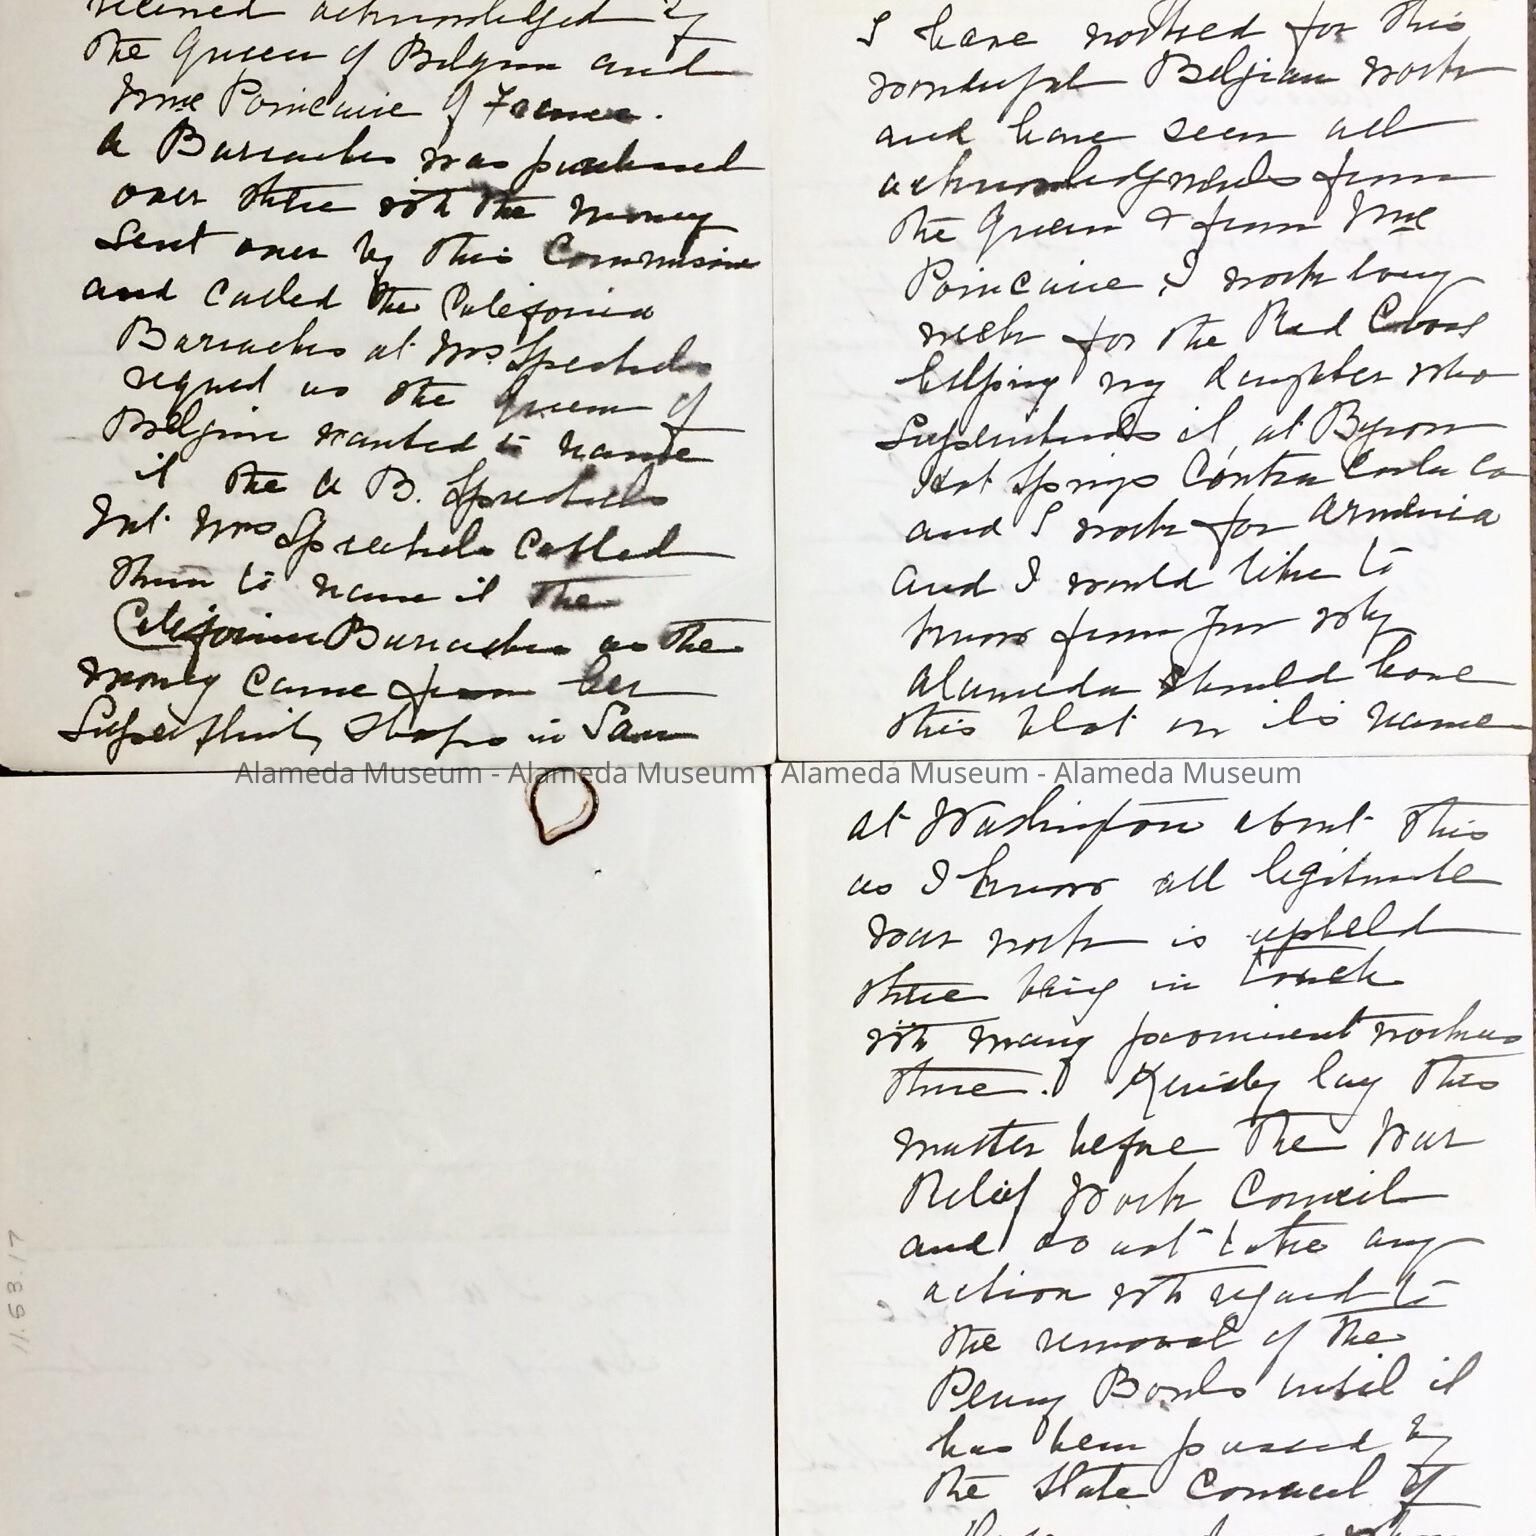 received acknowledged by
the Queen of Belgium and
Mme Poincaire of France.
A Barracks was purchased
over there with the money
sent over by this Commission
and called the California
Barracks at Mrs Spreckels
request as the Queen of
Belgium wanted to name
it the A B. Spreckels
but Mrs Spreckels
them to name it the
California Barracks as the
money came from her
Superfluity Shops in San
I have worked for this
wonderful Belgian work
and have seen all
acknowledgments from
the Queen & from Mme
Poincaire, I work every
week for the Red Cross
helping my daughter who
Superintends it at Byron
Hot Springs Contra Costa Co
and I work for Armenia
and I would like to
know from you why
Alameda should have
this blot on its name
Alameda Museum - Alameda Museum - Alameda Museum - Alameda Museum
at Washington about this
as I know all legitimate
war work is upheld
there being in touch
with many prominent workers
there. Kindly lay this
matter before the War
Relief Work Council
and do not take any
action with regard to
the removal of the
Penny Bowls until it
has been passed by
the State Council of
11.53.17